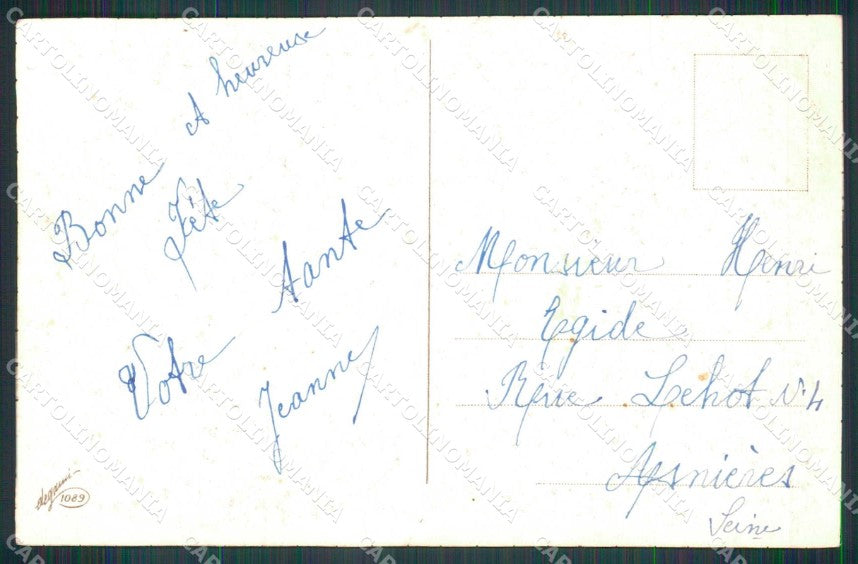 Bonne et heureuse
Fête
Votre tante
Jeanne
Monsieur Henri
Egide
Rue Lehot N.4
Asnières
Seine
degami
1089
CARTOLINOMANIA